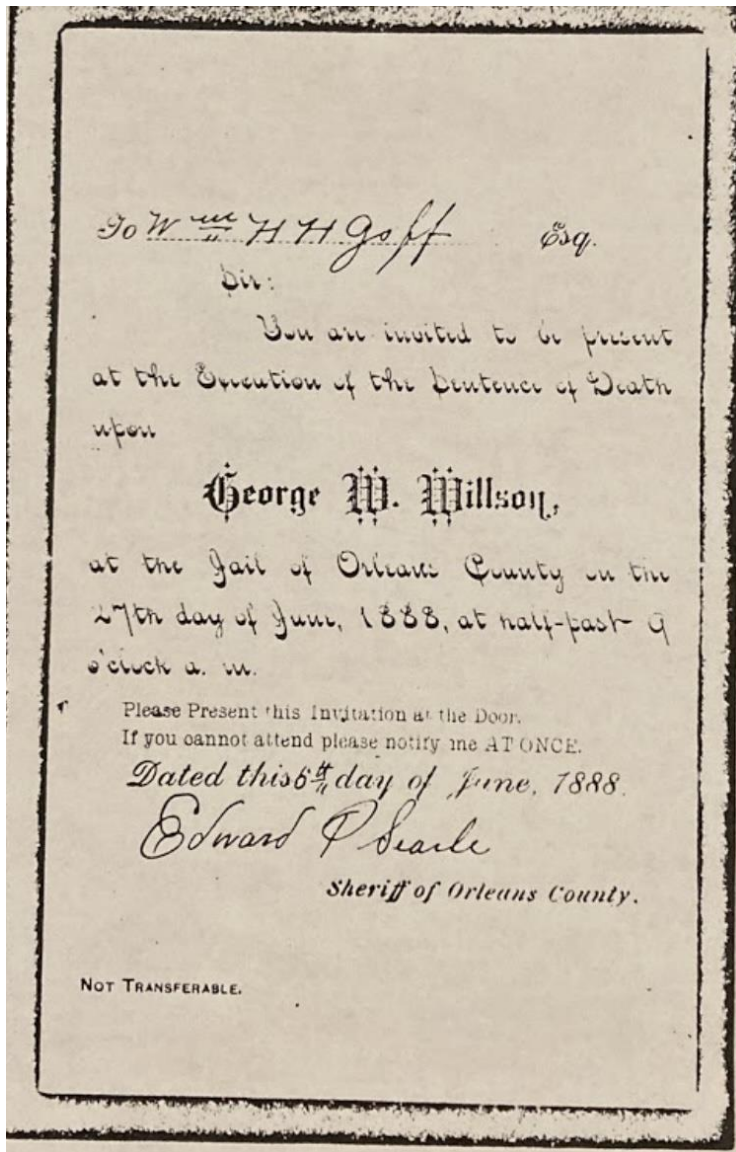 To Wm H H Goff Esq.
Sir:
You are invited to be present
at the Execution of the Sentence of Death
upon
George W. Willson,
at the Jail of Orleans County on the
27th day of June, 1888, at half-past 9
o'clock a. m.
Please Present this Invitation at the Door.
If you cannot attend please notify me AT ONCE.
Dated this 5th day of June, 1888.
Edward P Searle
Sheriff of Orleans County.
NOT TRANSFERABLE.